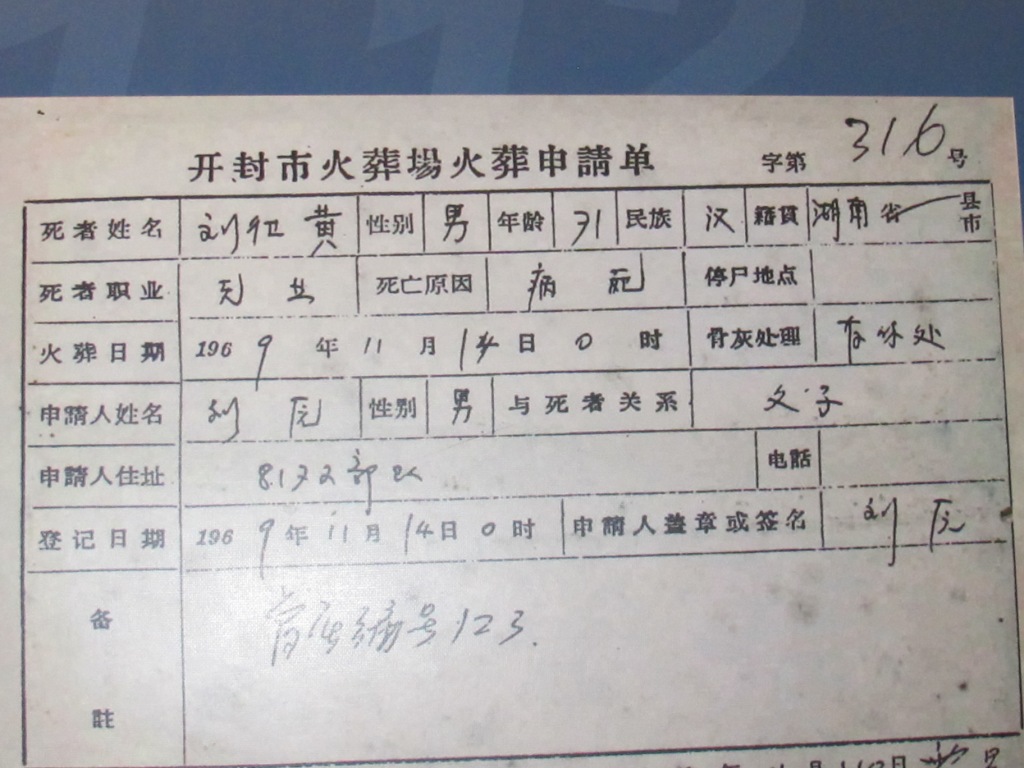 开封市火葬場火葬申請单
字第 316 号
死者姓名 刘卫黄 性别 男 年龄 71 民族 汉 籍貫 湖南省 县市
死者职业 无业 死亡原因 病死 停尸地点
火葬日期 1969年11月14日0时 骨灰处理 存休处
申請人姓名 刘原 性别 男 与死者关系 父子
申請人住址 8172部队 电話
登记日期 1969年11月14日0时 申請人盖章或签名 刘原
备註 骨灰编号123.